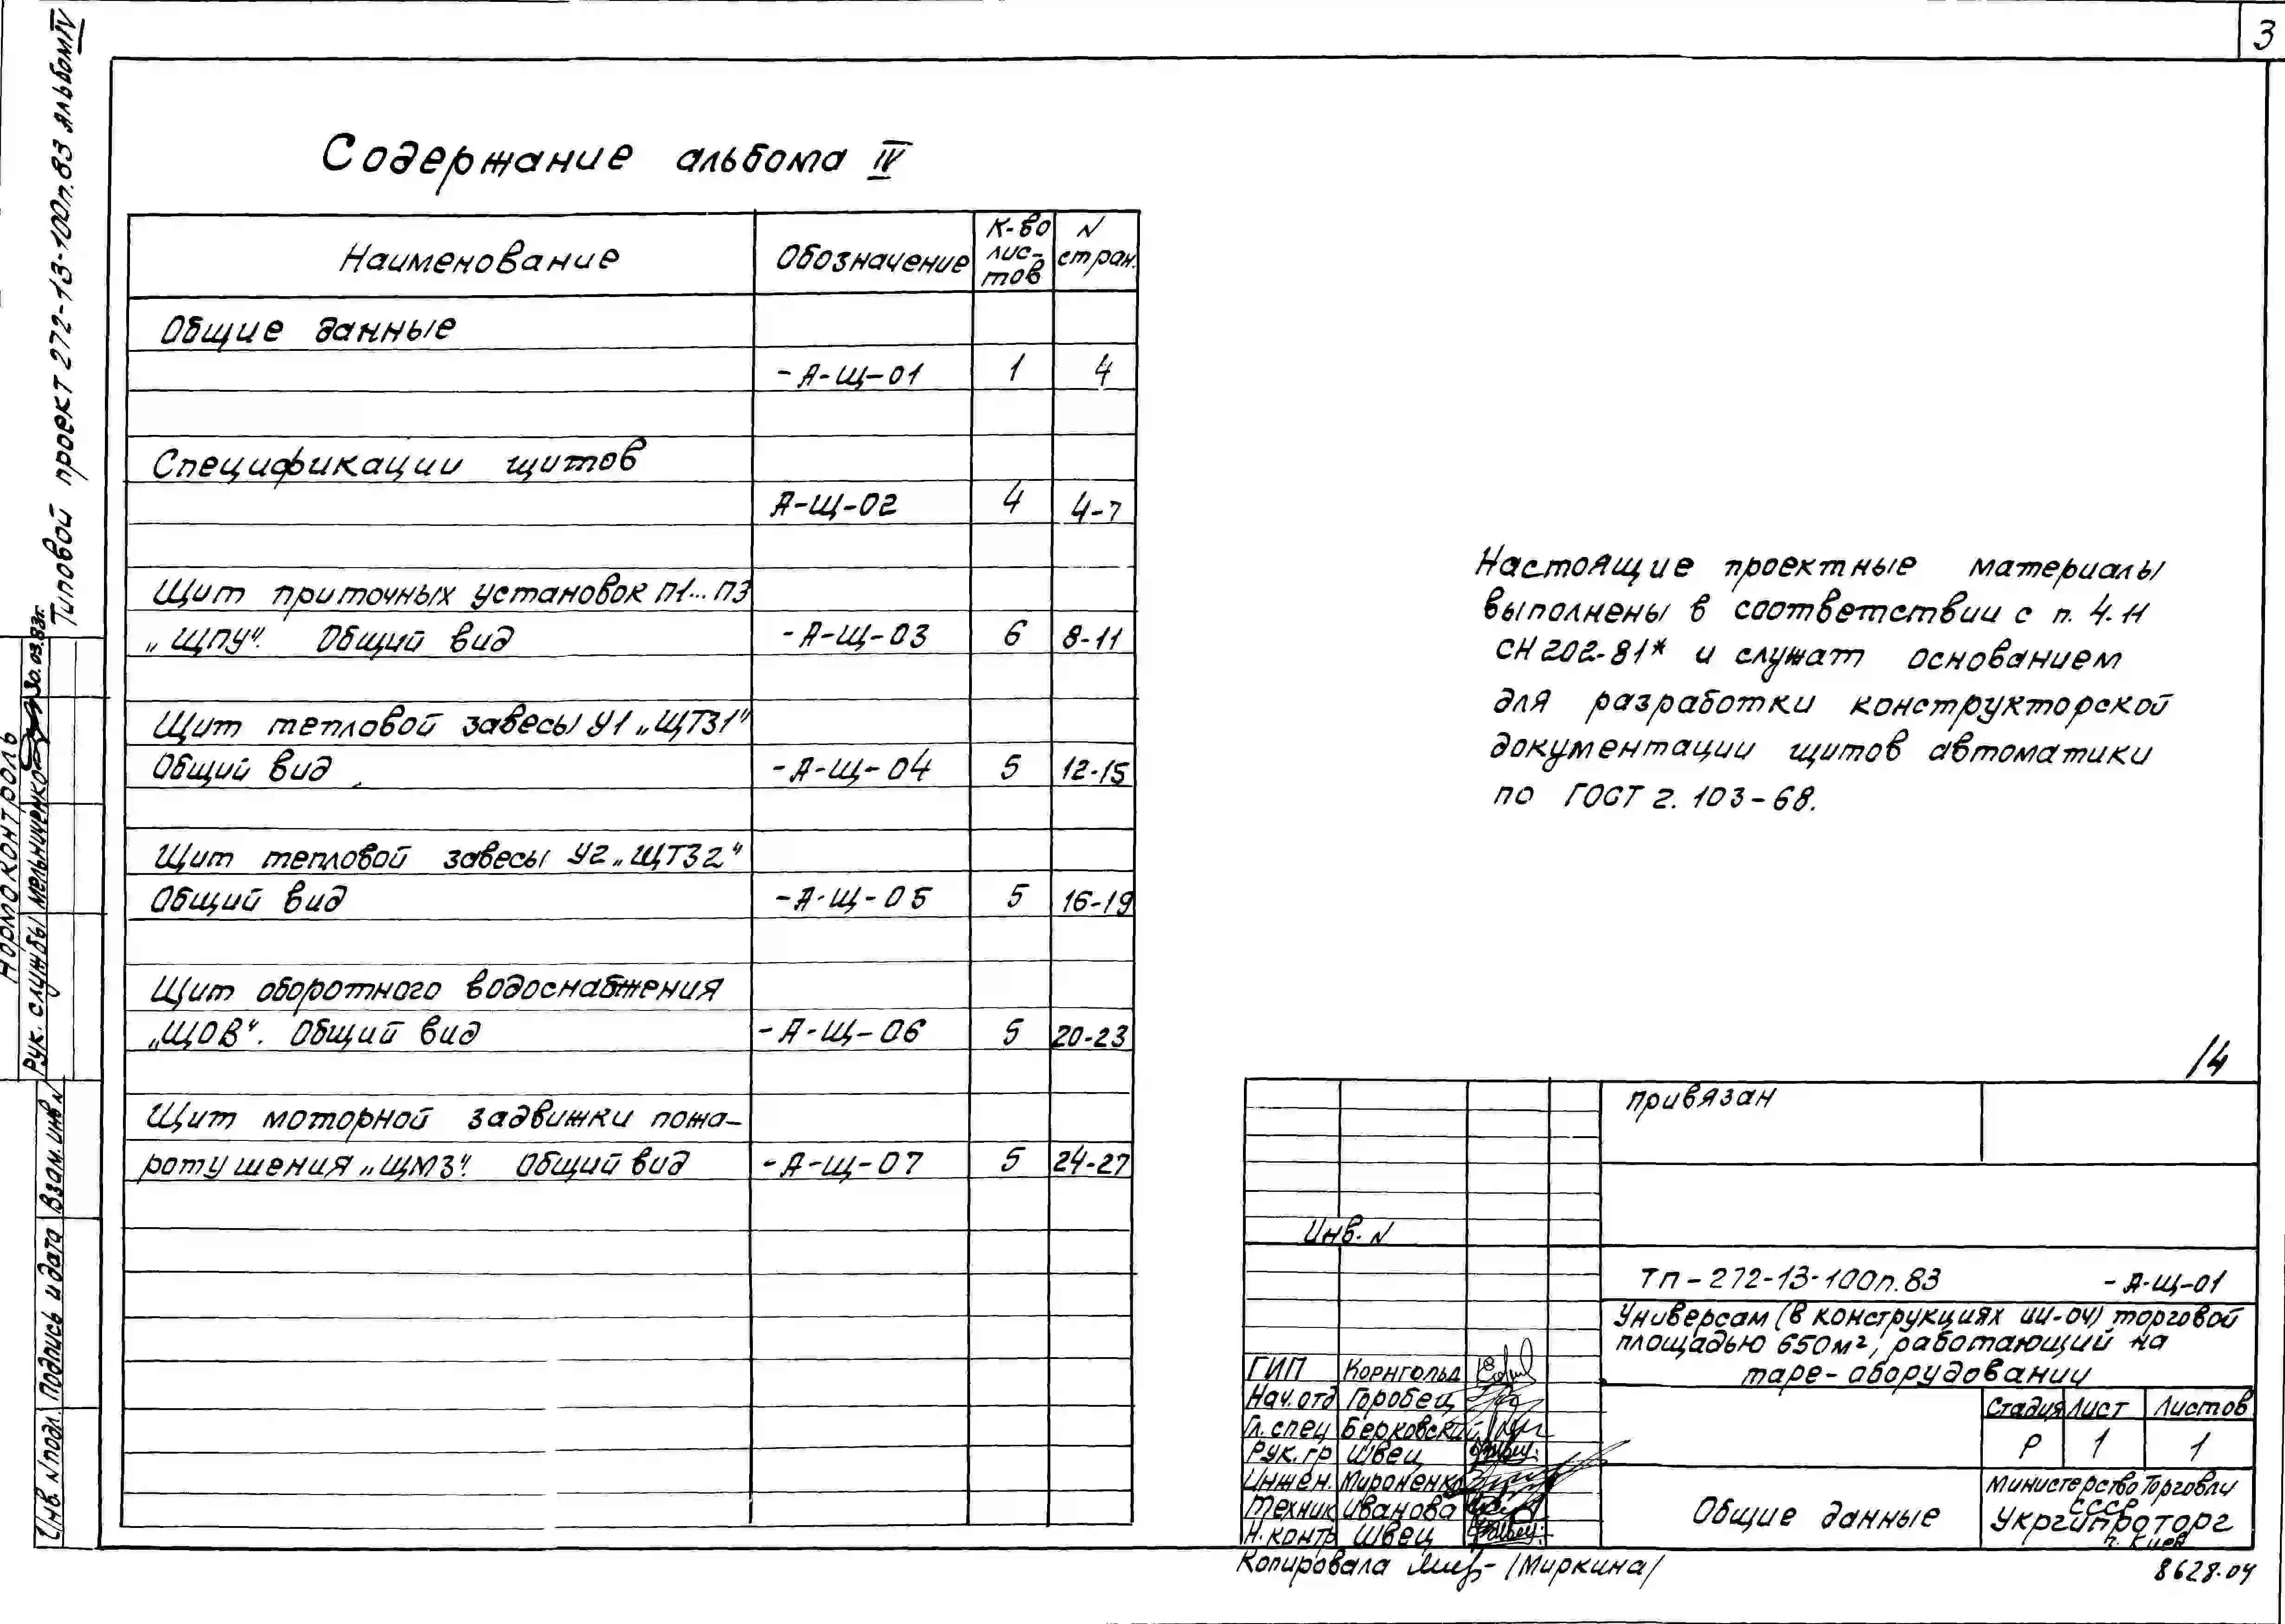 3
Типовой проект 272-13-100п.83 альбом IV
Содержание альбома IV
Наименование
Обозначение
К-во лис-тов
N стран.
Общие данные
-А-Щ-01 1 4
Спецификации щитов
А-Щ-02 4 4-7
Щит приточных установок П1...П3
„ЩПУ“. Общий вид -А-Щ-03 6 8-11
Щит тепловой завесы У1 „ЩТЗ1“
Общий вид -А-Щ-04 5 12-15
Щит тепловой завесы У2 „ЩТЗ2“
Общий вид -А-Щ-05 5 16-19
Щит оборотного водоснабжения
„ЩОВ“. Общий вид -А-Щ-06 5 20-23
Щит моторной задвижки пожа-
ротушения „ЩМЗ“. Общий вид -А-Щ-07 5 24-27
Настоящие проектные материалы
выполнены в соответствии с п. 4.11
СН 202-81* и служат основанием
для разработки конструкторской
документации щитов автоматики
по ГОСТ 2.103-68.
14
привязан
Инв. N
ТП-272-13-100п.83 -А-Щ-01
Универсам (в конструкциях ИИ-04) торговой
площадью 650м2, работающий на
таре-оборудовании
ГИП Корнгольд
Нач.отд Горобец
Гл.спец Берковский
Рук.гр Швец
Инжен. Мироненко
Техник Иванова
Н.контр Швец
Стадия Лист Листов
Р 1 1
Общие данные
Министерство Торговли
СССР
Укргипроторг
г. Киев
Копировала /Миркина/
8628-04
Нормоконтроль
Рук. службы Мельниченко 30.03.83г.
Взам. инв N
Подпись и дата
Инв. N подл.